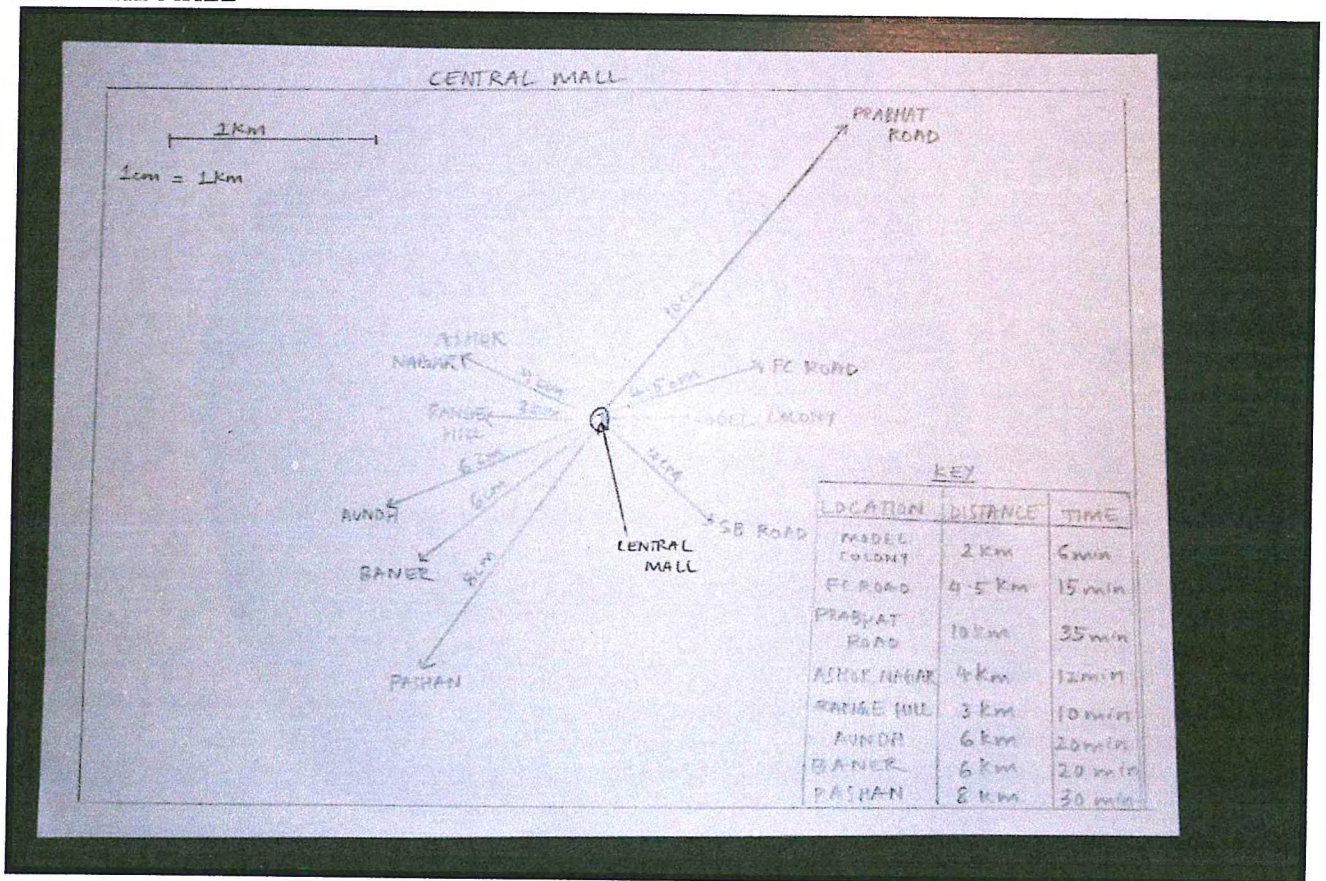 CENTRAL MALL
1Km
1cm = 1Km
PRABHAT
ROAD
10cm
ASHOK
NAGAR
4cm
4.5cm
FC ROAD
RANGE
HILL
3cm
COLONY
6cm
6cm
4cm
AUNDH
SB ROAD
BANER
8cm
CENTRAL
MALL
PASHAN
KEY
LOCATION DISTANCE TIME
MODEL
COLONY 2 Km 6min
FC ROAD 4.5 Km 15 min
PRABHAT
ROAD 10 Km 35 min
ASHOK NAGAR 4 Km 12min
RANGE HILL 3 Km 10 min
AUNDH 6 Km 20min
BANER 6 Km 20 min
PASHAN 8 Km 30 min